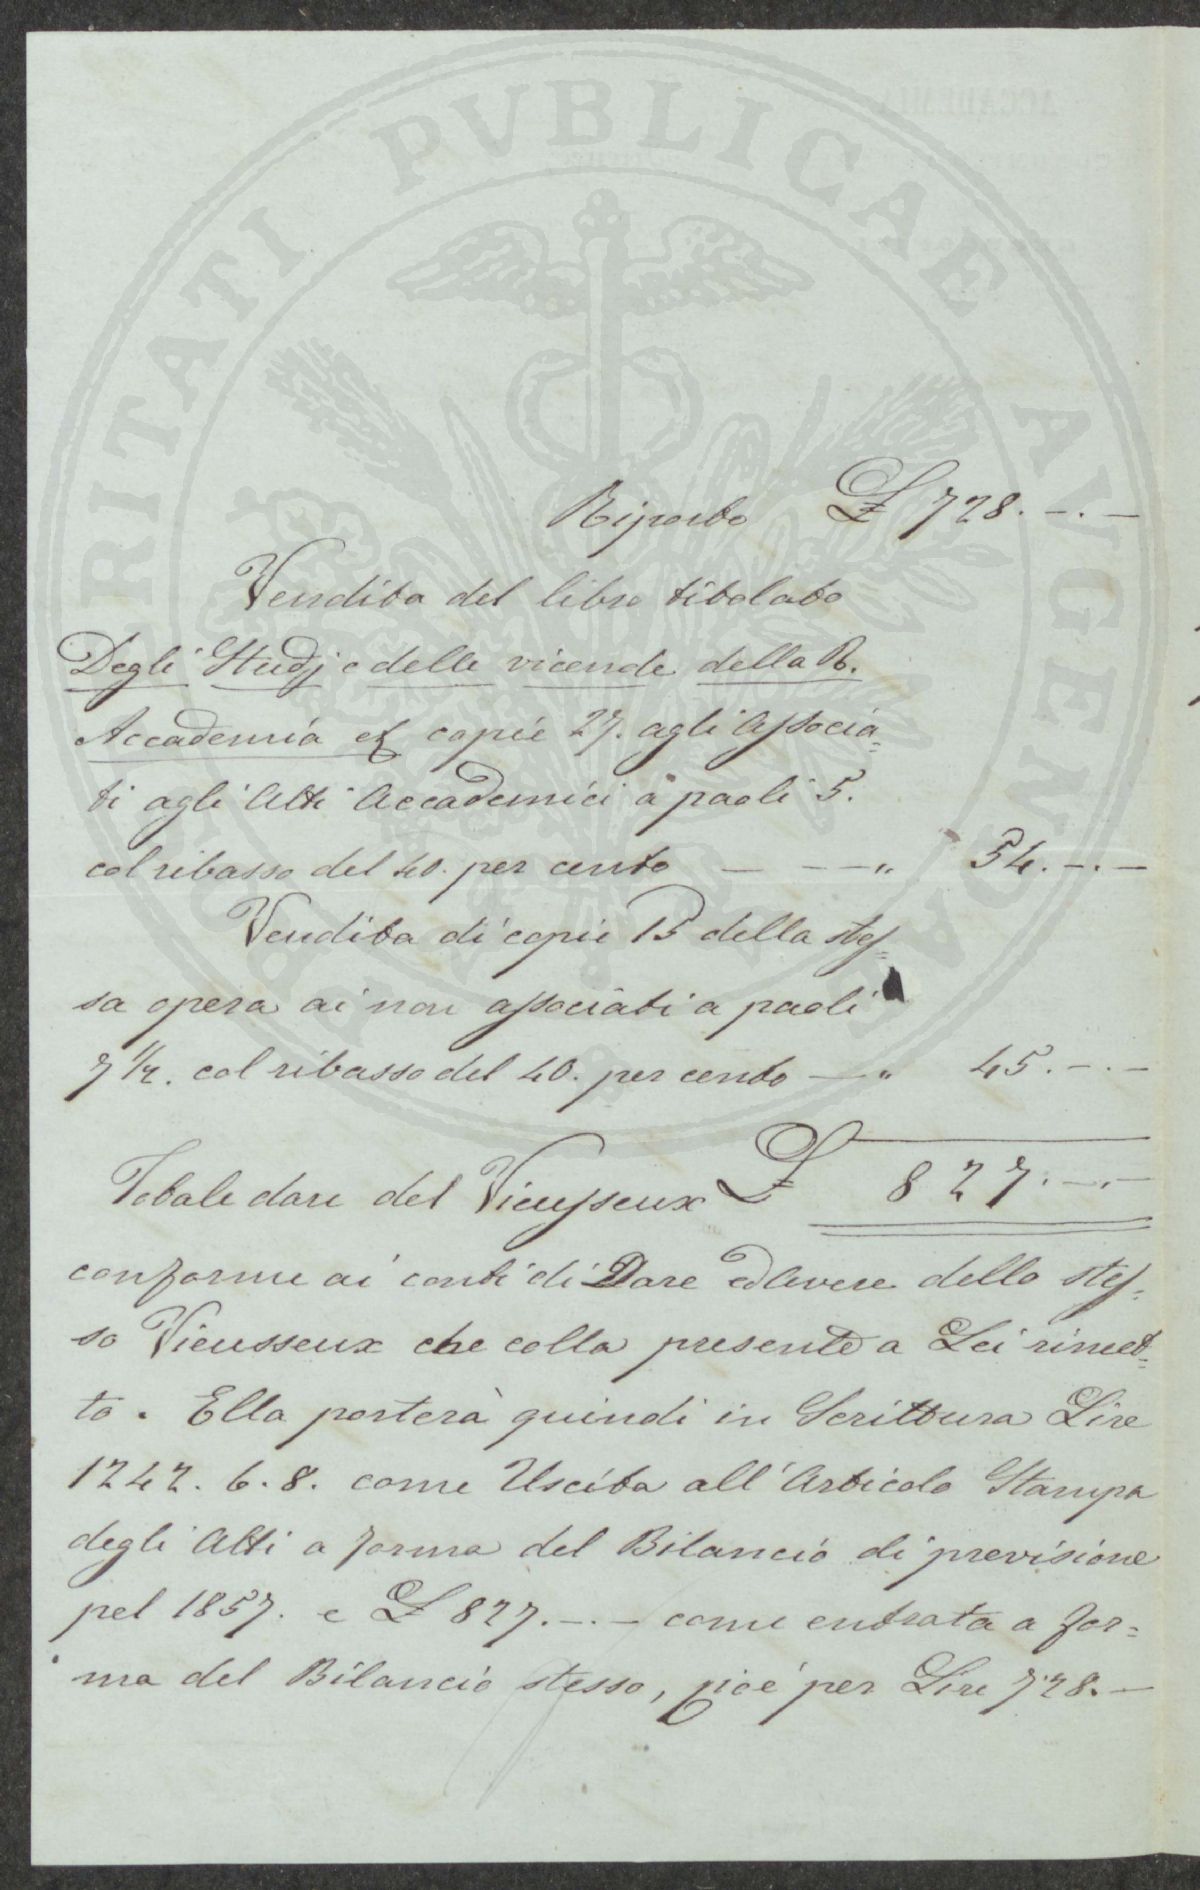 PROSPERITATI PVBLICAE AVGENDAE
Riporto £ 728. -.-
Vendita del libro titolato
Degli Studj e delle vicende della R.
Accademia & copie 27. agli Associa=
ti agli Atti Accademici a paoli 5.
col ribasso del 40. per cento — — " 54. -.-
Vendita di copie 15 della stes=
sa opera ai non associati a paoli
7 1/2. col ribasso del 40. per cento — " 45. -.-
Totale dare del Vieusseux £ 827. -.-
conforme ai conti di Dare ed Avere dello stes=
so Vieusseux che colla presente a Lei rimet=
to. Ella porterà quindi in Scrittura Lire
1242. 6. 8. come Uscita all'Articolo Stampa
degli Atti a forma del Bilancio di previsione
pel 1857. e £ 827. -.- come entrata a for=
ma del Bilancio stesso, cioè per Lire 728. -